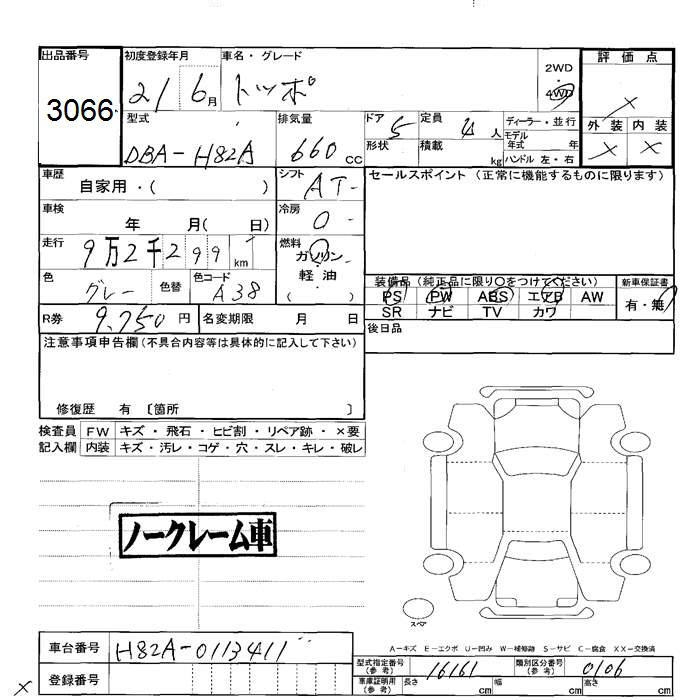 出品番号 初度登録年月 車名・グレード 2WD 評価点
3066 21 6月 トッポ 4WD ×
型式 排気量 ドア 定員 ディーラー・並行 外装 内装
DBA-H82A 660 CC 5 4人 モデル年式 年 × ×
形状 積載 kg ハンドル 左・右
車歴 シフト セールスポイント (正常に機能するものに限ります)
自家用・( ) AT
車検 冷房
年 月( 日) 0
走行 燃料
9万2千299 km ガソリン
色 色替 色コード 軽油
グレー A38 ( )
装備品 (純正品に限り○をつけてください) 新車保証書
PS PW ABS エアB AW 有・無
SR ナビ TV カワ
R券 9,750円 名変期限 月 日
後日品
注意事項申告欄 (不具合内容等は具体的に記入して下さい)
修復歴 有 〔箇所 〕
検査員 FW キズ・飛石・ヒビ割・リペア跡・×要
記入欄 内装 キズ・汚レ・コゲ・穴・スレ・キレ・破レ
ノークレーム車
スペア
A-キズ E-エクボ U-凹み W-補修跡 S-サビ C-腐食 XX-交換済
車台番号 H82A-0113411
型式指定番号 (参考) 16161 類別区分番号 (参考) 0106
登録番号
車庫証明用 (参考) 長さ cm 幅 cm 高さ cm
×